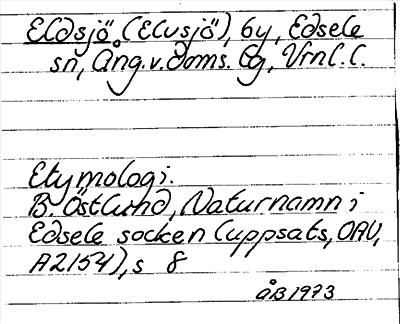 Eldsjö (Elvsjö), by, Edsele
sn, Ång.v.doms. lg, Vrnl. l.
Etymologi.
B. Östlund, Naturnamn i
Edsele socken (uppsats, OAU,
A2154), s 8
åB 1973